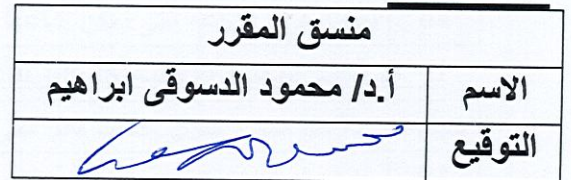 منسق المقرر
الاسم أ.د/ محمود الدسوقى ابراهيم
التوقيع